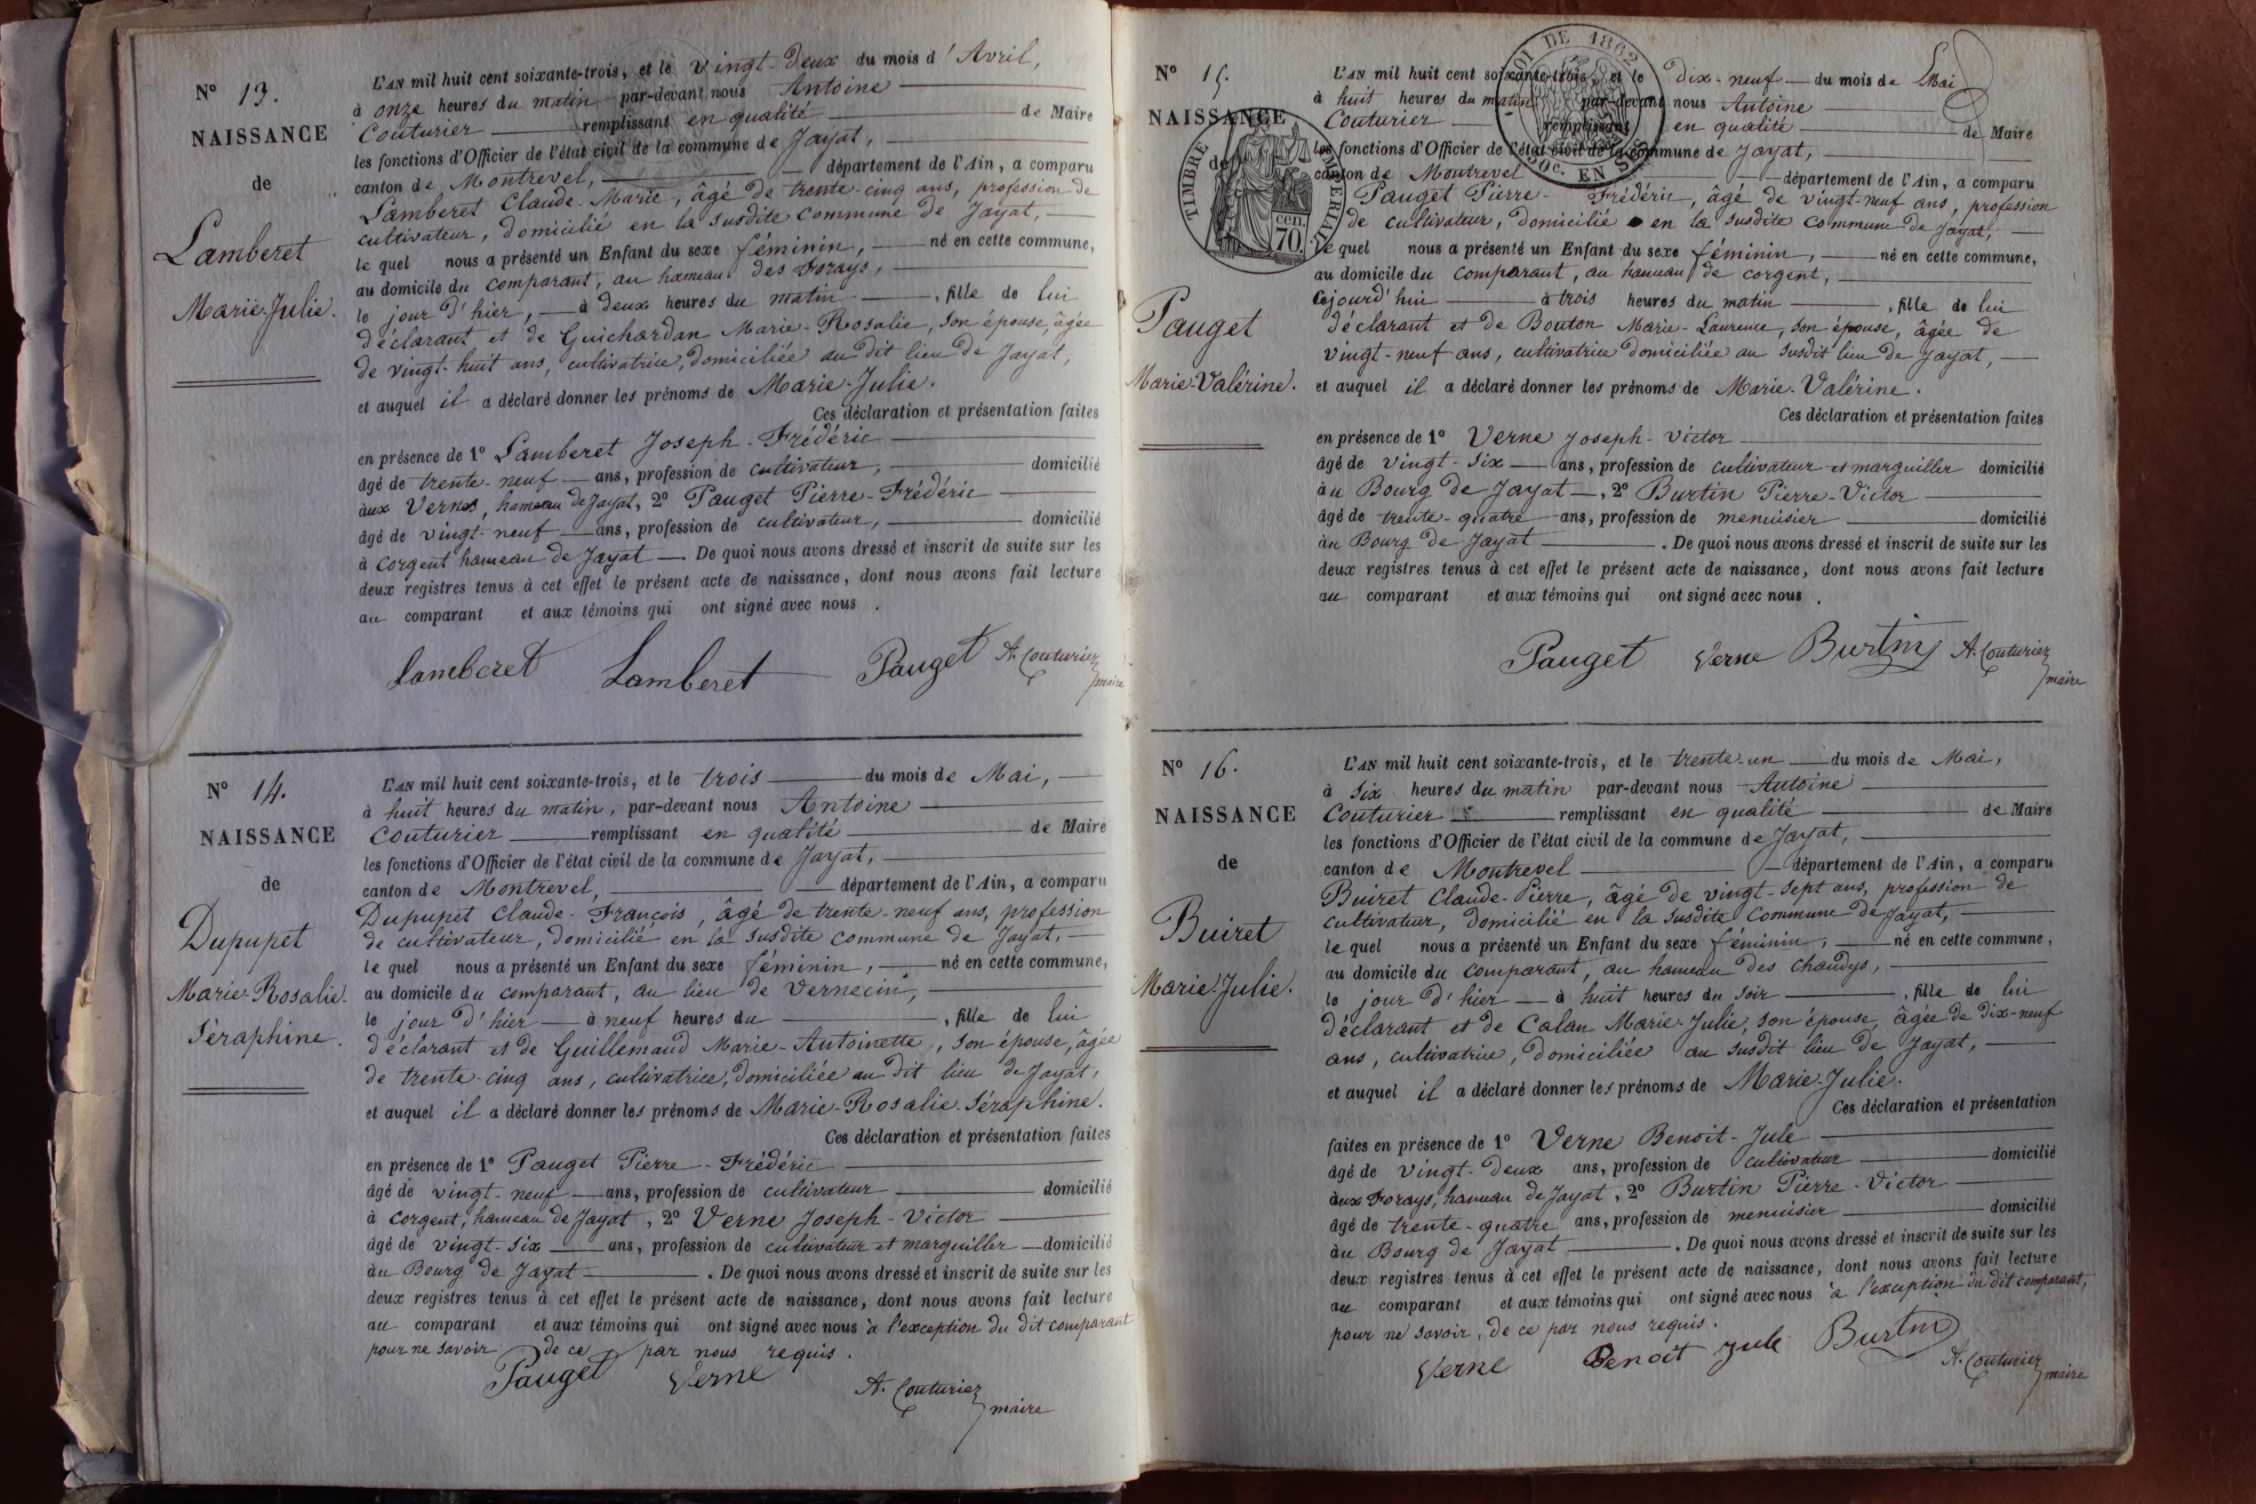 N° 13.
NAISSANCE
de
Lamberet
Marie-Julie.
L'AN mil huit cent soixante-trois, et le vingt-deux du mois d'Avril,
à onze heures du matin par-devant nous Antoine
Couturier remplissant en qualité de Maire
les fonctions d'Officier de l'état civil de la commune de Jayat,
canton de Montrevel, département de l'Ain, a comparu
Lamberet Claude-Marie, âgé de trente-cinq ans, profession de
cultivateur, domicilié en la susdite commune de Jayat,
le quel nous a présenté un Enfant du sexe féminin, né en cette commune,
au domicile du comparant, au hameau des Forays,
le jour d'hier, à deux heures du matin, fille de lui
déclarant et de Guichardan Marie-Rosalie, son épouse, âgée
de vingt-huit ans, cultivatrice, domiciliée au dit lieu de Jayat,
et auquel il a déclaré donner les prénoms de Marie-Julie.
Ces déclaration et présentation faites
en présence de 1° Lamberet Joseph-Frédéric
âgé de trente-neuf ans, profession de cultivateur, domicilié
aux Vernes, hameau de Jayat, 2° Pauget Pierre-Frédéric
âgé de vingt-neuf ans, profession de cultivateur, domicilié
à Corgent hameau de Jayat De quoi nous avons dressé et inscrit de suite sur les
deux registres tenus à cet effet le présent acte de naissance, dont nous avons fait lecture
au comparant et aux témoins qui ont signé avec nous.
Lamberet Lamberet Pauget A. Couturier
maire
N° 14.
NAISSANCE
de
Dupupet
Marie-Rosalie-
Séraphine.
L'AN mil huit cent soixante-trois, et le trois du mois de Mai,
à huit heures du matin, par-devant nous Antoine
Couturier remplissant en qualité de Maire
les fonctions d'Officier de l'état civil de la commune de Jayat,
canton de Montrevel, département de l'Ain, a comparu
Dupupet Claude-François, âgé de trente-neuf ans, profession
de cultivateur, domicilié en la susdite commune de Jayat,
le quel nous a présenté un Enfant du sexe féminin, né en cette commune,
au domicile du comparant, au lieu de Vernecin,
le jour d'hier à neuf heures du , fille de lui
déclarant et de Guillemaud Marie-Antoinette, son épouse, âgée
de trente-cinq ans, cultivatrice, domiciliée au dit lieu de Jayat,
et auquel il a déclaré donner les prénoms de Marie-Rosalie-Séraphine.
Ces déclaration et présentation faites
en présence de 1° Pauget Pierre-Frédéric
âgé de vingt-neuf ans, profession de cultivateur domicilié
à Corgent, hameau de Jayat, 2° Verne Joseph-Victor
âgé de vingt-six ans, profession de cultivateur et marguiller domicilié
au Bourg de Jayat. De quoi nous avons dressé et inscrit de suite sur les
deux registres tenus à cet effet le présent acte de naissance, dont nous avons fait lecture
au comparant et aux témoins qui ont signé avec nous à l'exception du dit comparant
pour ne savoir, de ce par nous requis.
Pauget Verne
A. Couturier
maire
N° 15.
NAISSANCE
de
Pauget
Marie-Valérine.
LOI DE 1862
50c. EN SUS
TIMBRE IMPERIAL
cen.
70
L'AN mil huit cent soixante-trois, et le dix-neuf du mois de Mai
à huit heures du matin par-devant nous Antoine
Couturier remplissant en qualité de Maire
les fonctions d'Officier de l'état civil de la commune de Jayat,
canton de Montrevel département de l'Ain, a comparu
Pauget Pierre-Frédéric, âgé de vingt-neuf ans, profession
de cultivateur, domicilié en la susdite commune de Jayat,
le quel nous a présenté un Enfant du sexe féminin, né en cette commune,
au domicile du comparant, au hameau de Corgent,
cejourd'hui à trois heures du matin, fille de lui
déclarant et de Bouton Marie-Laurence, son épouse, âgée de
vingt-neuf ans, cultivatrice domiciliée au susdit lieu de Jayat,
et auquel il a déclaré donner les prénoms de Marie-Valérine.
Ces déclaration et présentation faites
en présence de 1° Verne Joseph-Victor
âgé de vingt-six ans, profession de cultivateur et marguiller domicilié
au Bourg de Jayat, 2° Burtin Pierre-Victor
âgé de trente-quatre ans, profession de menuisier domicilié
au Bourg de Jayat. De quoi nous avons dressé et inscrit de suite sur les
deux registres tenus à cet effet le présent acte de naissance, dont nous avons fait lecture
au comparant et aux témoins qui ont signé avec nous.
Pauget Verne Burtin A. Couturier
maire
N° 16.
NAISSANCE
de
Buiret
Marie-Julie.
L'AN mil huit cent soixante-trois, et le trente-un du mois de Mai,
à six heures du matin par-devant nous Antoine
Couturier remplissant en qualité de Maire
les fonctions d'Officier de l'état civil de la commune de Jayat,
canton de Montrevel département de l'Ain, a comparu
Buiret Claude-Pierre, âgé de vingt-sept ans, profession de
cultivateur, domicilié en la susdite commune de Jayat,
le quel nous a présenté un Enfant du sexe féminin, né en cette commune,
au domicile du comparant, au hameau des Chaudys,
le jour d'hier à huit heures du soir, fille de lui
déclarant et de Calan Marie-Julie, son épouse, âgée de dix-neuf
ans, cultivatrice, domiciliée au susdit lieu de Jayat,
et auquel il a déclaré donner les prénoms de Marie-Julie.
Ces déclaration et présentation
faites en présence de 1° Verne Benoit-Jule
âgé de vingt-deux ans, profession de cultivateur domicilié
aux Forays, hameau de Jayat, 2° Burtin Pierre-Victor
âgé de trente-quatre ans, profession de menuisier domicilié
au Bourg de Jayat. De quoi nous avons dressé et inscrit de suite sur les
deux registres tenus à cet effet le présent acte de naissance, dont nous avons fait lecture
au comparant et aux témoins qui ont signé avec nous à l'exception du dit comparant,
pour ne savoir, de ce par nous requis.
Verne Benoit Jule Burtin
A. Couturier
maire